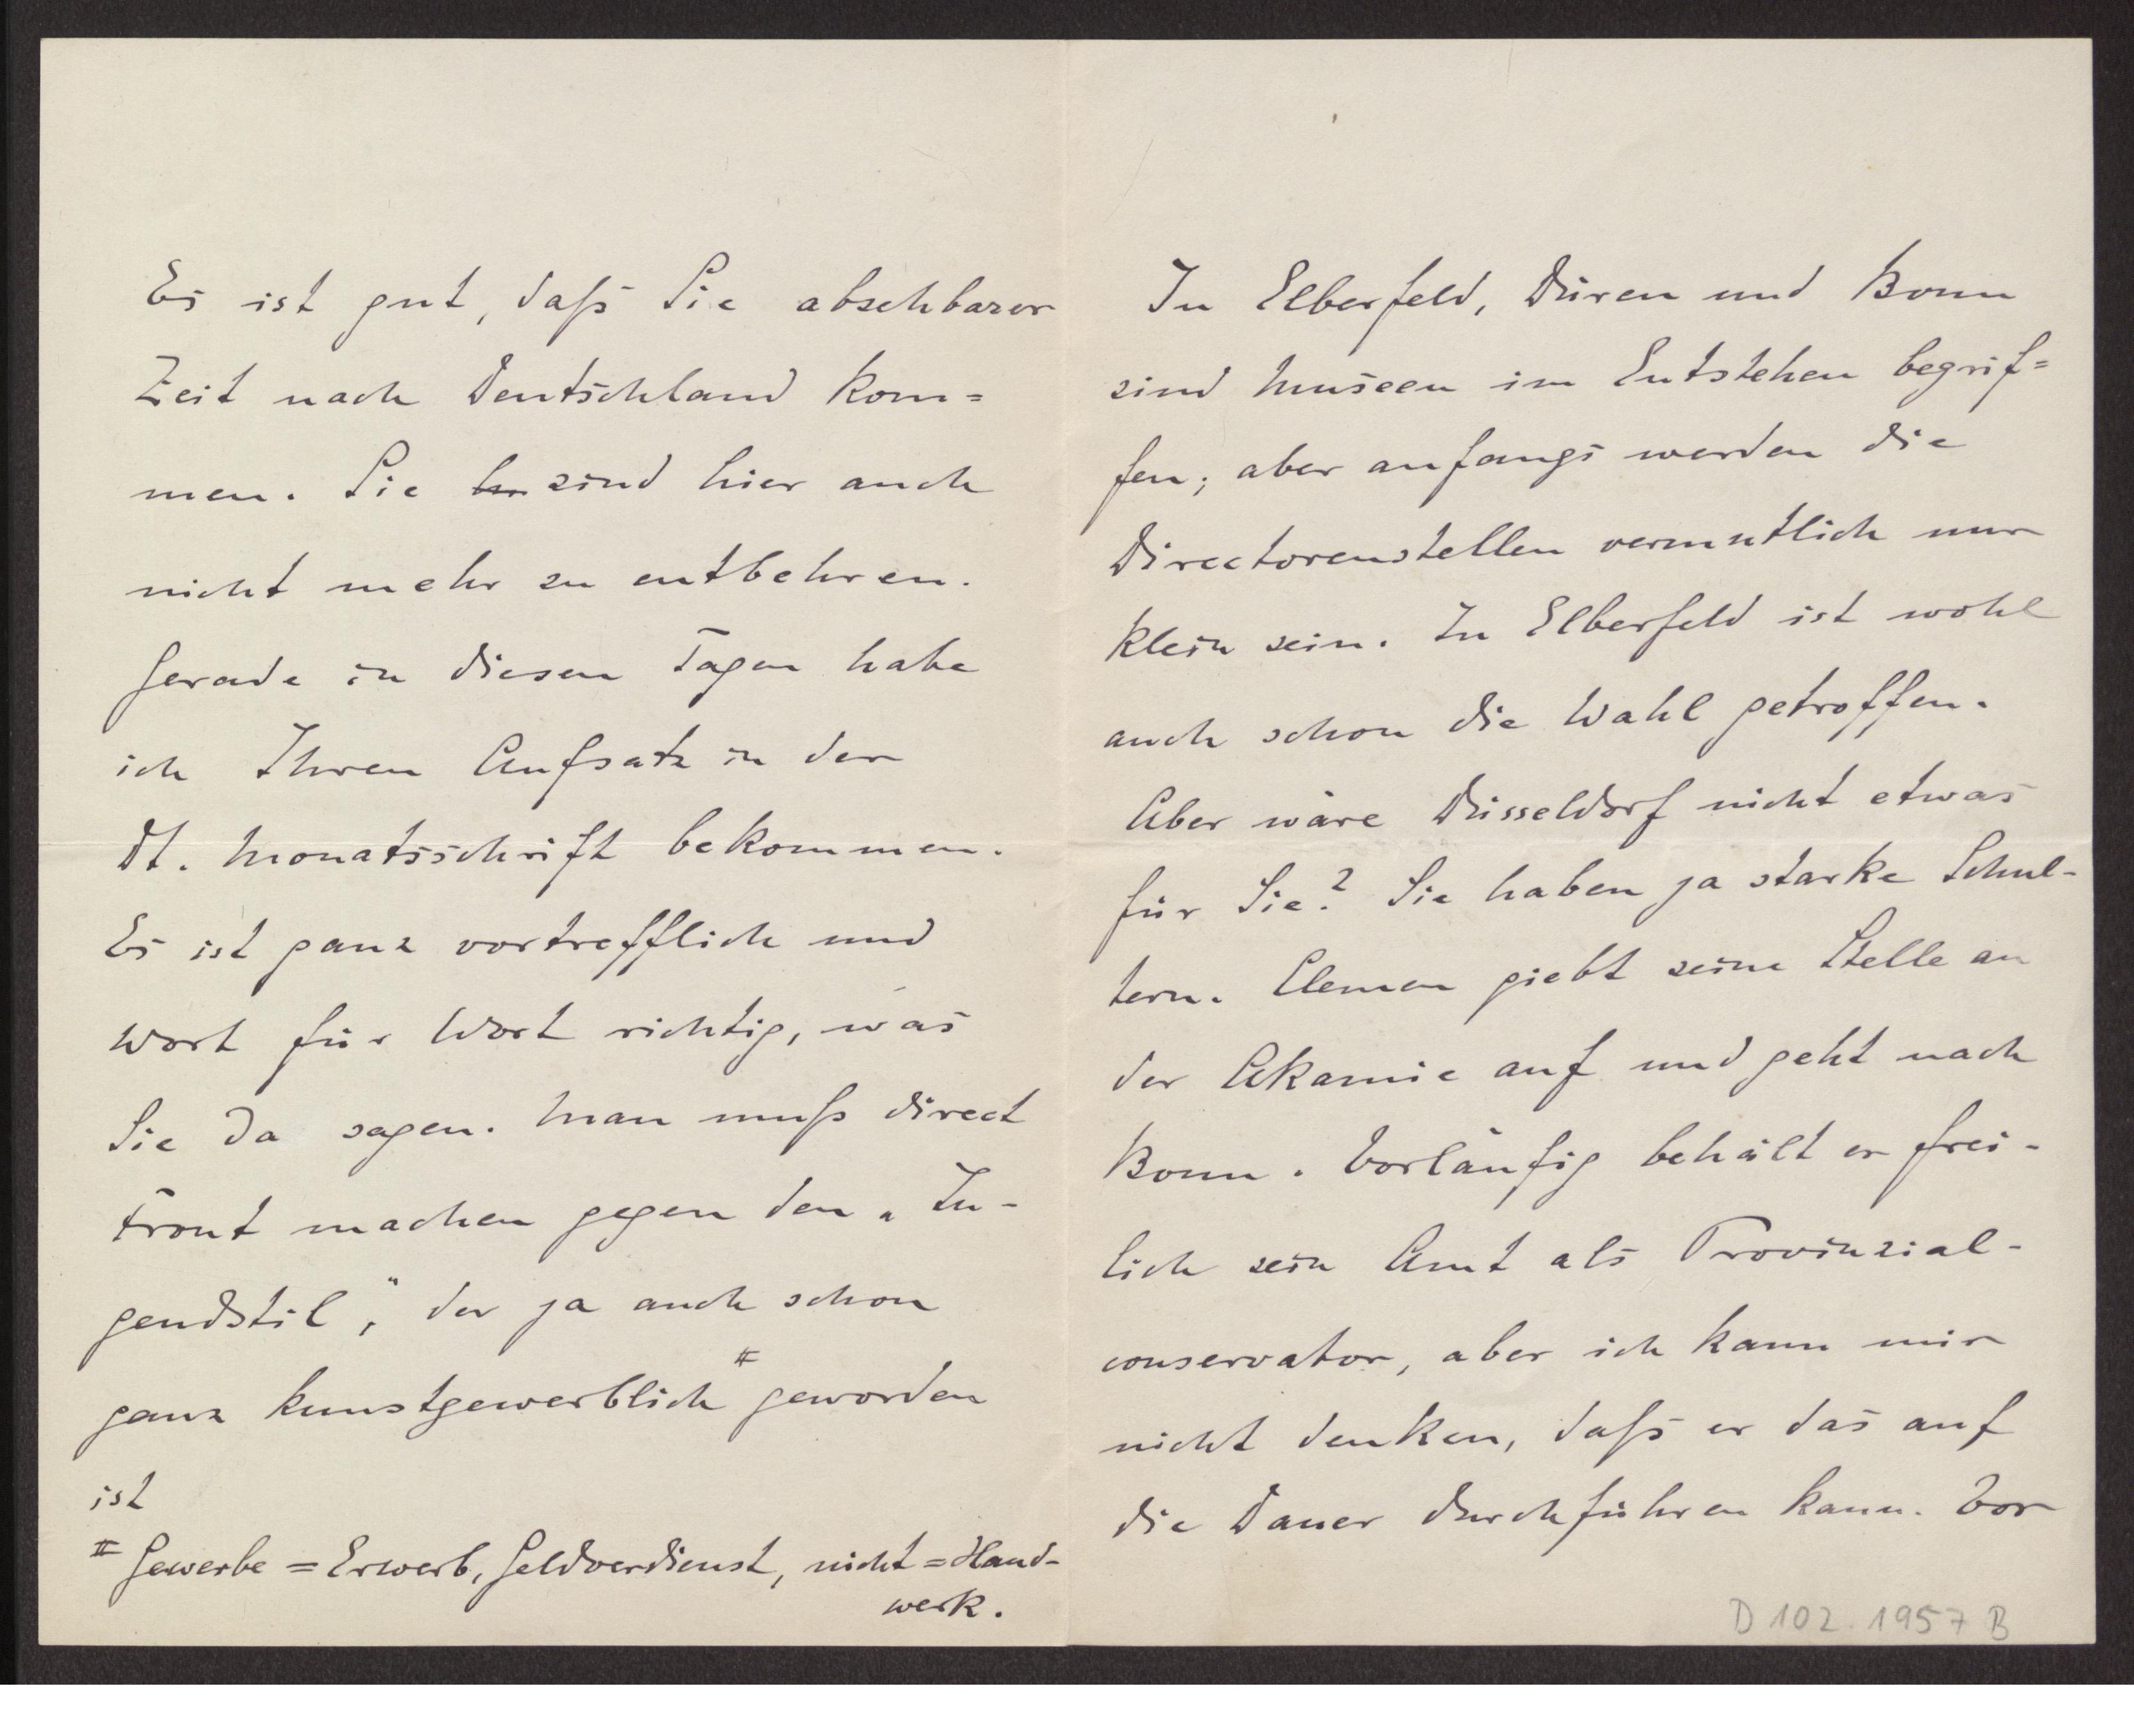 Es ist gut, daß Sie absehbarer
Zeit nach Deutschland kom=
men. Sie sind hier auch
nicht mehr zu entbehren.
Gerade in diesen Tagen habe
ich Ihren Aufsatz in der
Dt. Monatsschrift bekommen.
Es ist ganz vortrefflich und
Wort für Wort richtig, was
Sie da sagen. Man muß direct
Front machen gegen den „Ju-
gendstil", der ja auch schon
ganz kunstgewerblich # geworden
ist
# Gewerbe = Erwerb, Geldverdienst, nicht = Hand-
werk.
In Elberfeld, Düren und Bonn
sind Museen im Entstehen begrif=
fen; aber anfangs werden die
Directorenstellen vermutlich nur
klein sein. In Elberfeld ist wohl
auch schon die Wahl getroffen.
Aber wäre Düsseldorf nicht etwas
für Sie? Sie haben ja starke Schul-
tern. Clemen giebt seine Stelle an
der Akamie auf und geht nach
Bonn. Vorläufig behält er frei-
lich sein Amt als Provinzial-
conservator, aber ich kann mir
nicht denken, daß er das auf
die Dauer durchführen kann. Vor
D 102.1957 B